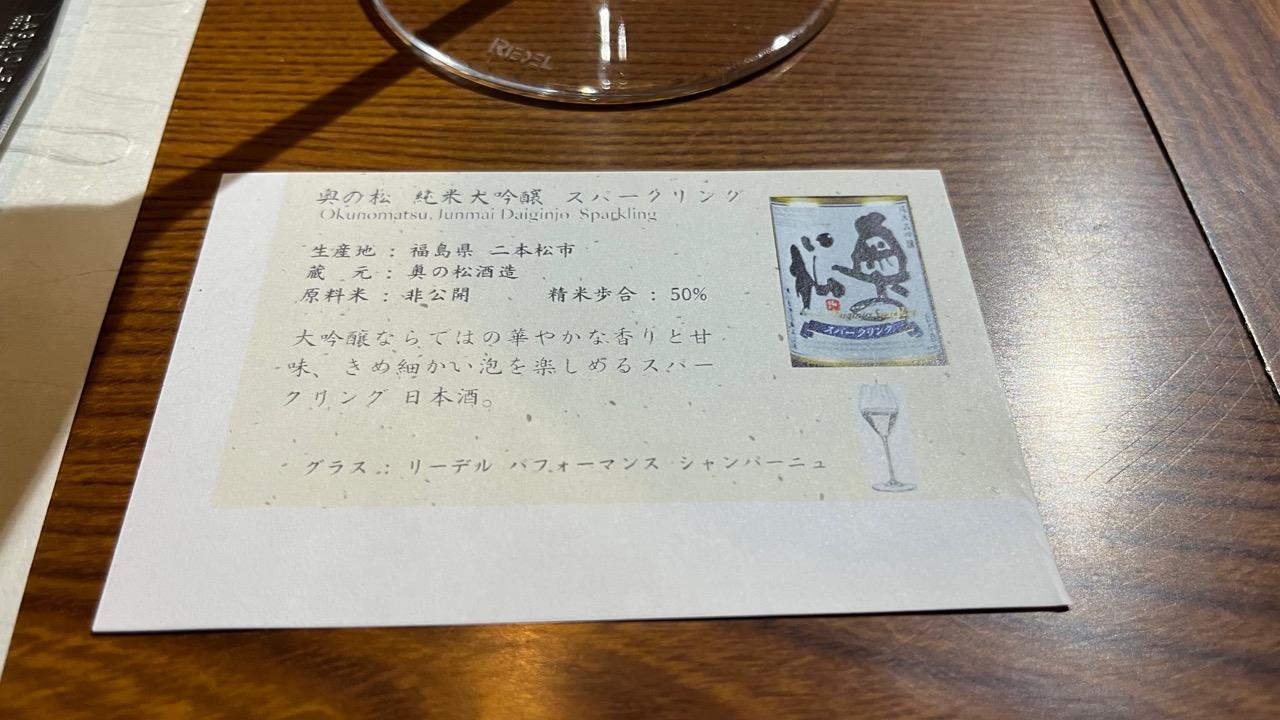 RIEDEL
奥の松 純米大吟醸 スパークリング
Okunomatsu, Junmai Daiginjo Sparkling
生産地 : 福島県 二本松市
蔵 元 : 奥の松酒造
原料米 : 非公開 精米歩合 : 50%
大吟醸ならではの華やかな香りと甘
味、きめ細かい泡を楽しめるスパー
クリング 日本酒。
グラス : リーデル パフォーマンス シャンパーニュ
奥の松
スパークリング